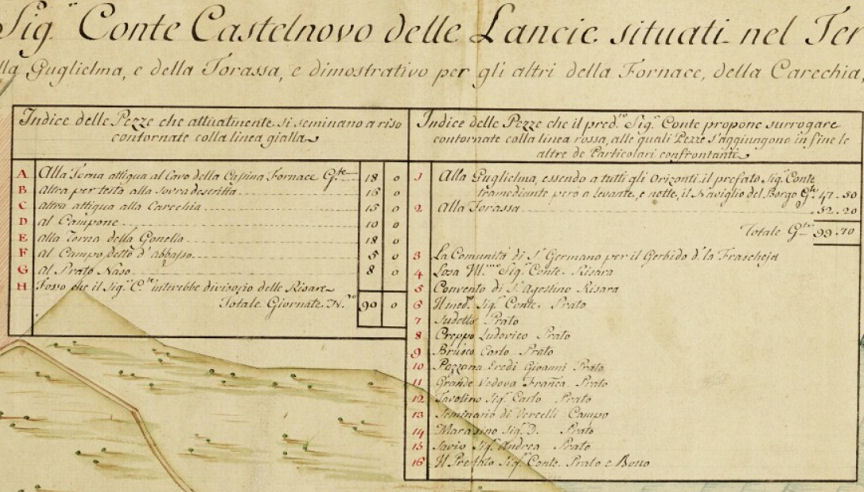 Sig.r Conte Castelnovo delle Lancie situati nel Ter
lla Guglielma, e della Torassa, e dimostrativo per gli altri della Fornace, della Carechia,
Indice delle Pezze che attualmente si seminano a riso
contornate colla linea gialla
A Alla Terna attigua al Caso della Cassina Fornace G.te 18 0
B altra per testa alla sovra descritta 15 0
C altra attigua alla Carechia 15 0
D al Campone 10 0
E alla Torna della Gonella 18 0
F al Campo detto d'abbasso 5 0
G al Prato Naso 8 0
H Fosso che il Sig.r C.te intende divisorio delle Risare
Totale Giornate N.ro 90 0
Indice delle Pezze che il pred.to Sig.r Conte propone surrogare
contornate colla linea rossa, alle quali Pezze s'aggiungono in fine le
altre de Particolari confrontanti
1 Alla Guglielma, essendo a tutti gli Orizonti il prefato Sig.r Conte
tramediante però a levante, e notte, il Naviglio del Borgo G.te 47.50
2 Alla Torassa 52.20
Totale G.te 99.70
3 La Comunità di S.t Germano per il Gerbido d.to la Frascheja
4 Sig.r Conte Risara
5 Convento di S.t Agostino Risara
6 Il med.mo Sig.r Conte Prato
7 Sudetto Prato
8 Creppo Ludovico Prato
9 Brusco Carlo Prato
10 Pozzona Eredi Giovanni Prato
11 Grande Vedova Franca Prato
12 Savolino Sig.r Carlo Prato
13 Seminario di Vercelli Campo
14 Sig.r D. Prato
15 Savio Sig.r Andrea Prato
16 Il Prefato Sig.r Conte Prato e